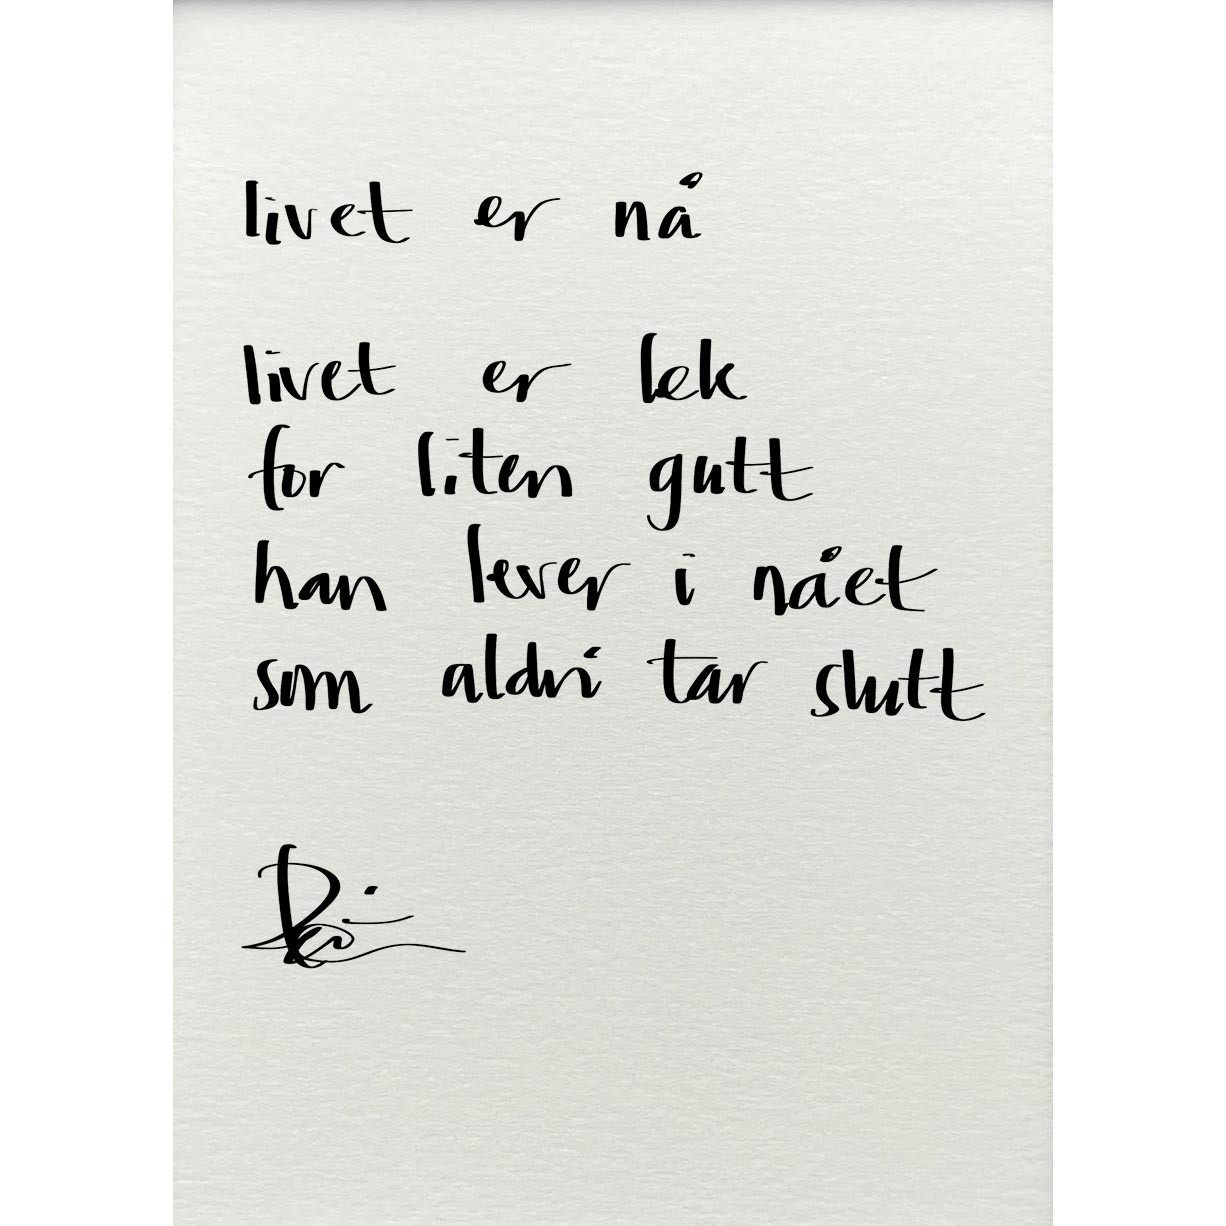 livet er nå
livet er lek
for liten gutt
han lever i nået
som aldri tar slutt